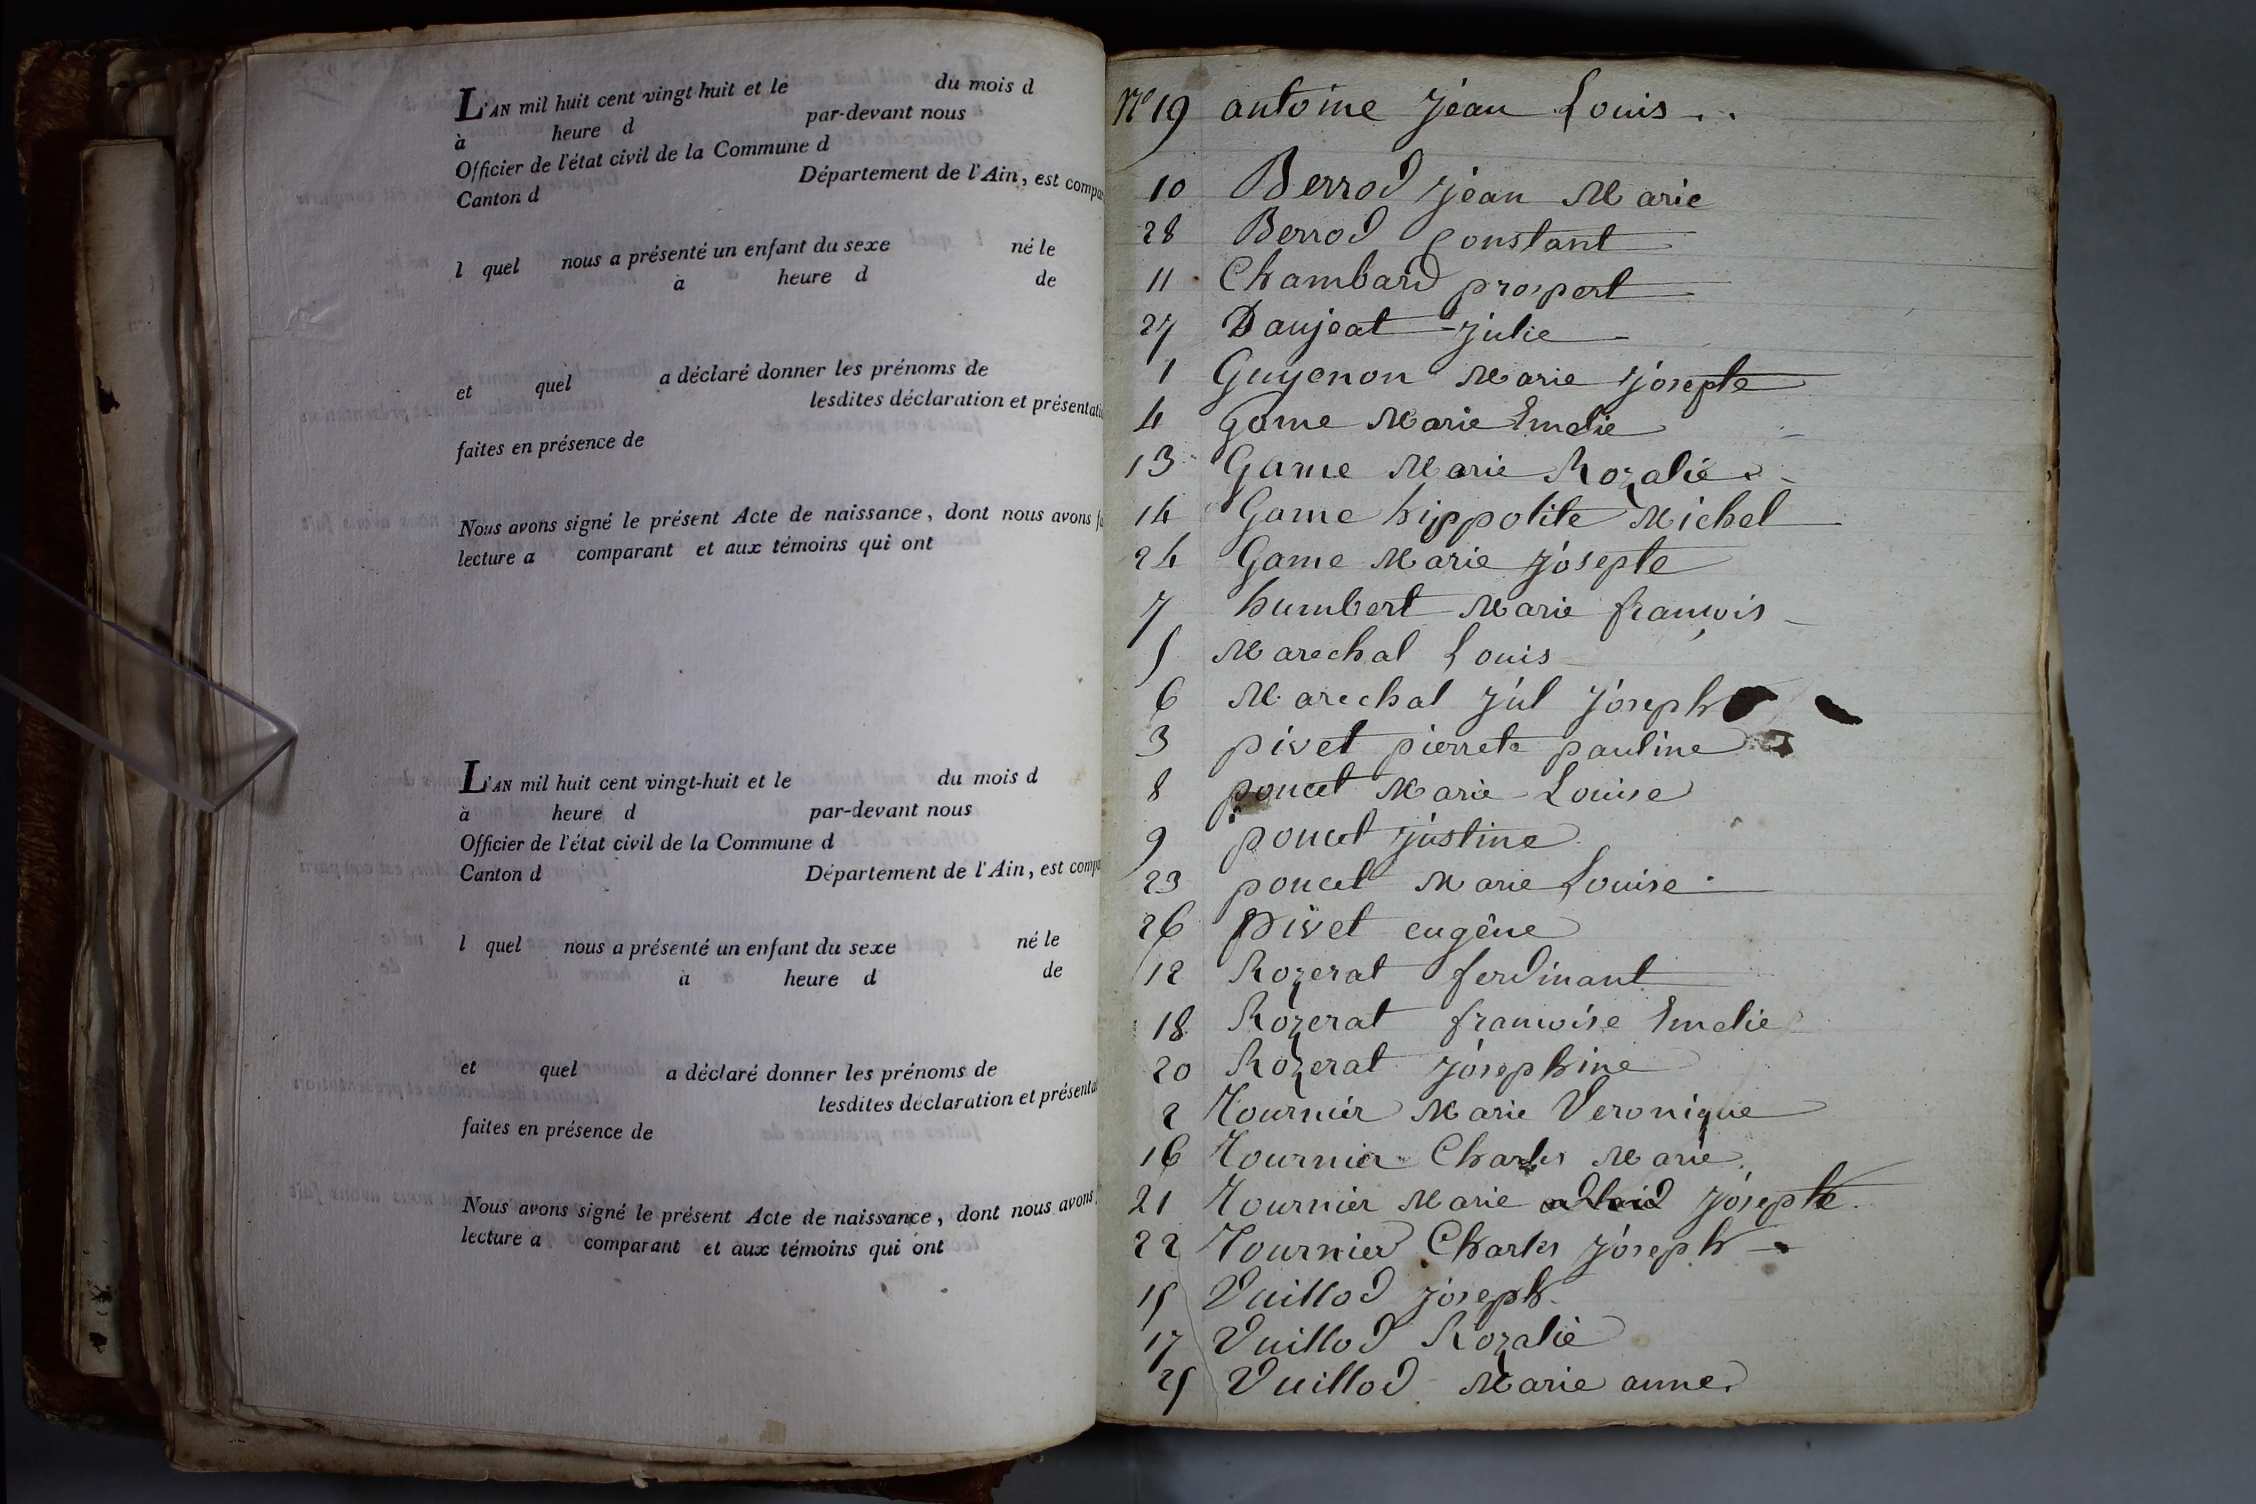 L'AN mil huit cent vingt-huit et le du mois d
à heure d par-devant nous
Officier de l'état civil de la Commune d
Canton d Département de l'Ain, est compa
l quel nous a présenté un enfant du sexe né le
à heure d de
et quel a déclaré donner les prénoms de
lesdites déclaration et présentati
faites en présence de
Nous avons signé le présent Acte de naissance, dont nous avons f
lecture a comparant et aux témoins qui ont
L'AN mil huit cent vingt-huit et le du mois d
à heure d par-devant nous
Officier de l'état civil de la Commune d
Canton d Département de l'Ain, est compa
l quel nous a présenté un enfant du sexe né le
à heure d de
et quel a déclaré donner les prénoms de
lesdites déclaration et présenta
faites en présence de
Nous avons signé le présent Acte de naissance, dont nous avons
lecture a comparant et aux témoins qui ont
N° 19 antoine jéan Louis
10 Berrod jéan Marie
28 Berrod Constant
11 Chambard prospert
27 Daujeat julie
1 Guyenon Marie josepte
4 Game Marie Emelie
13 Game Marie Rozalie
14 Game hippolite Michel
24 Game Marie josepte
7 humbert Marie françois
5 Marechal Louis
6 Marechal jul joseph
3 pivet pierrete pauline
8 poncet Marie Louise
9 poncet justine
23 poncet Marie Louise
26 pivet eugêne
12 Rozerat ferdinant
18 Rozerat françoise Emelie
20 Rozerat josephine
2 Tournier Marie Veronique
16 Tournier Charles Marie
21 Tournier Marie josepte
22 Tournier Charles joseph
15 Vuillod joseph
17 Vuillod Rozalie
25 Vuillod Marie anne